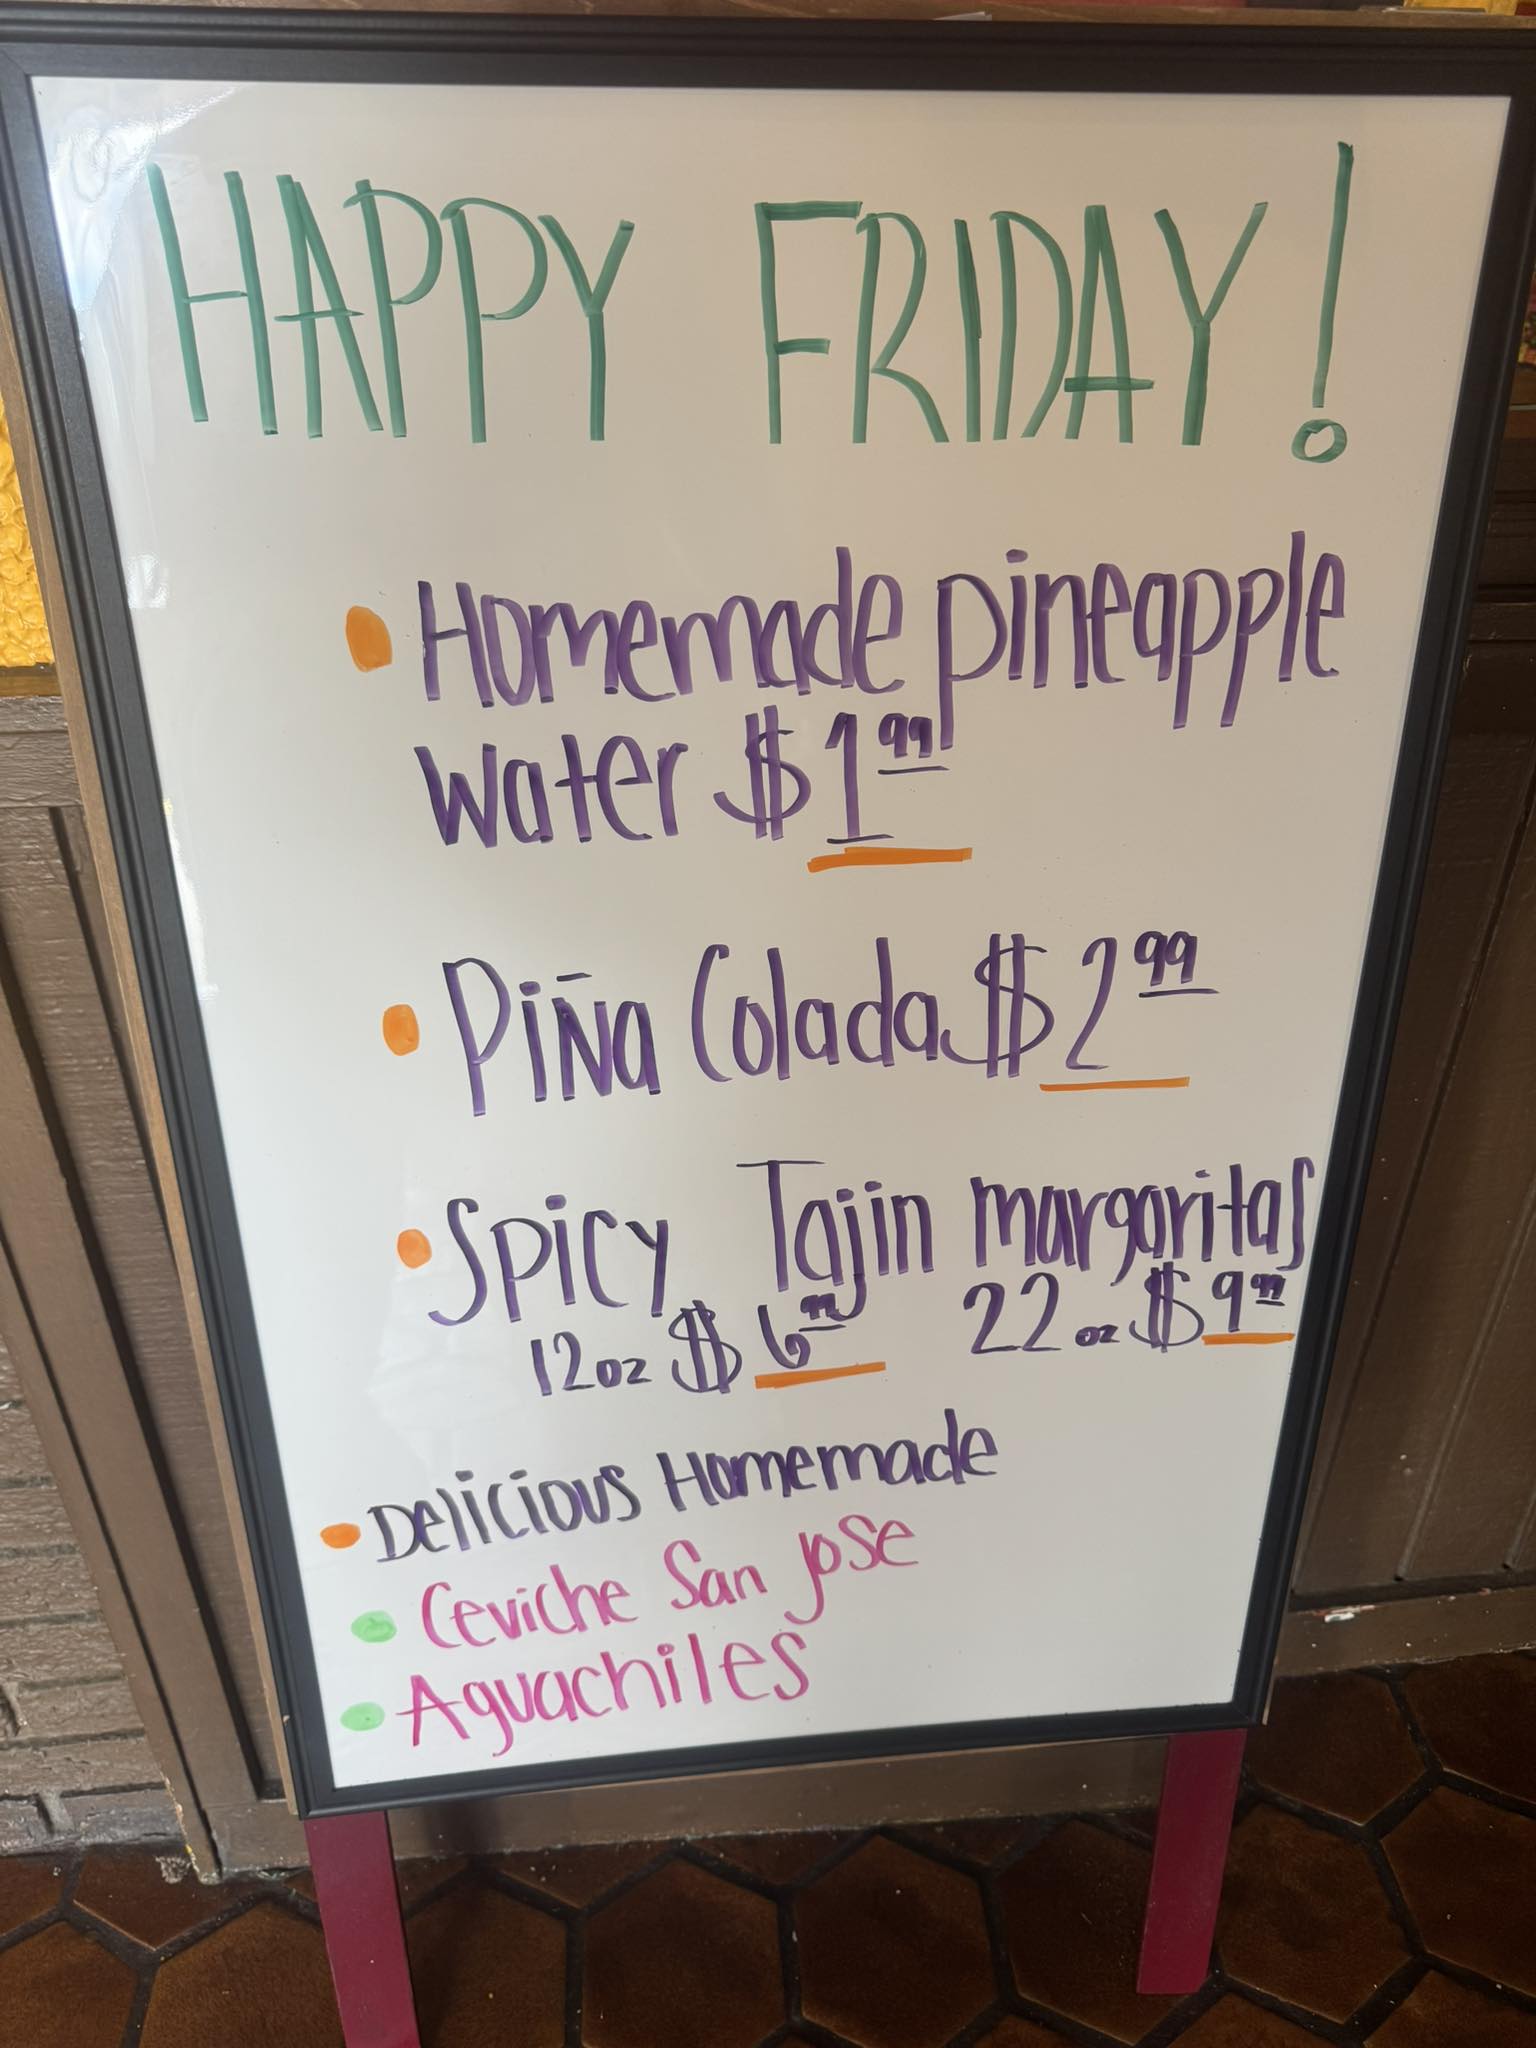 HAPPY FRIDAY!
• Homemade pineapple
water $1.99
• Piña Colada $2.99
• Spicy Tajin margaritas
12oz $6.99 22oz $9.99
• Delicious Homemade
• Ceviche San jose
• Aguachiles